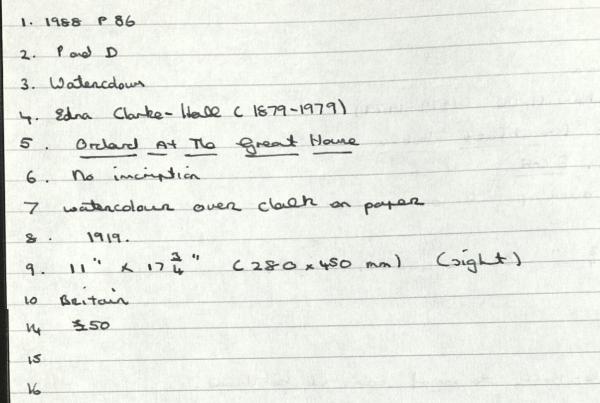 1. 1988 P 86
2. P and D
3. Watercolours
4. Edna Clarke-Hall (1879-1979)
5. Orchard At The Great House
6. No incription
7 watercolour over chalk on paper
8. 1919.
9. 11" x 17 3/4" (280 x 450 mm) (sight)
10 Britain
14 £50
15
16